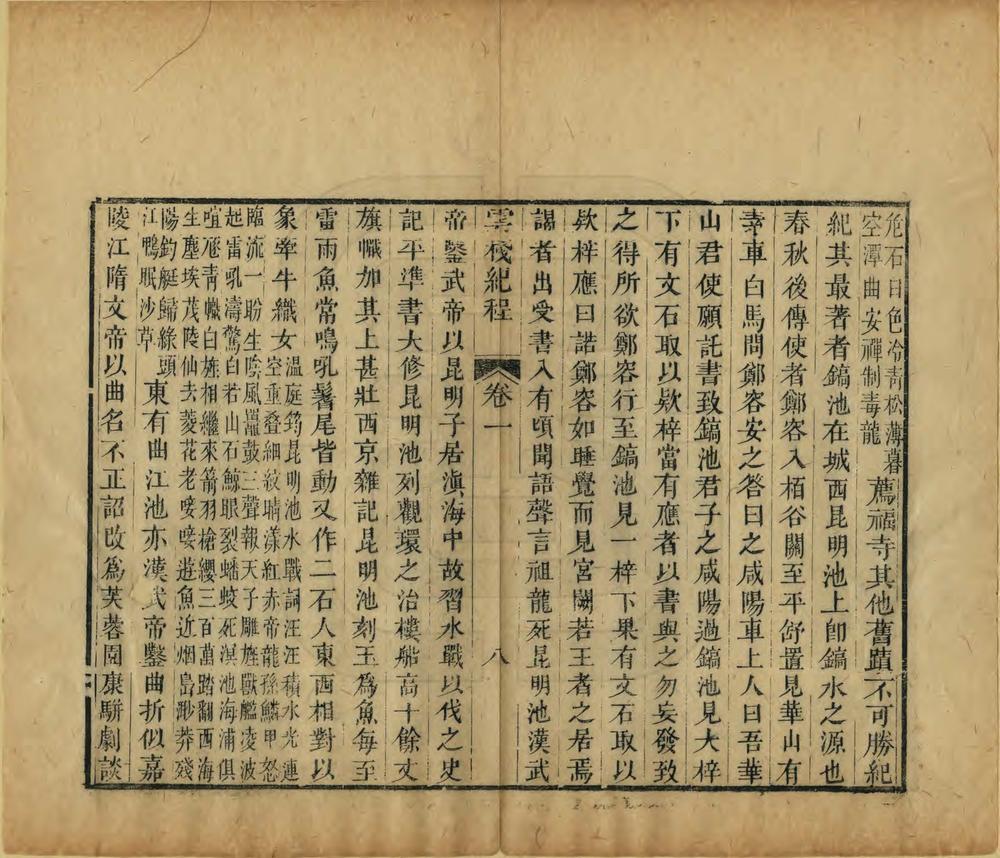 危石日色冷青松薄暮
空潭曲安禪制毒龍
薦福寺其他舊蹟不可勝紀
紀其最著者鎬池在城西昆明池上卽鎬水之源也
春秋後傳使者鄭容入栢谷關至平舒置見華山有
素車白馬問鄭容安之答曰之咸陽車上人曰吾華
山君使願託書致鎬池君子之咸陽過鎬池見大梓
下有文石取以欵梓當有應者以書與之勿妄發致
之得所欲鄭容行至鎬池見一梓下果有文石取以
欵梓應曰諾鄭容如睡覺而見宮闕若王者之居焉
謁者出受書入有頃聞語聲言祖龍死昆明池漢武
雲棧紀程 卷一 八
帝鑿武帝以昆明子居滇海中故習水戰以伐之史
記平準書大修昆明池列觀環之治樓船高十餘丈
旗幟加其上甚壯西京雜記昆明池刻玉爲魚每至
雷雨魚常鳴吼鬐尾皆動又作二石人東西相對以
象牽牛織女
溫庭筠昆明池水戰詞汪汪積水光連
空重叠細紋晴漾紅赤帝龍孫鱗甲怒
臨流一盼生陰風鼉鼓三聲報天子雕旌獸艦凌波
起雷吼濤驚白若山石鯨眼裂蟠蛟死溟池海浦俱
喧豗靑幟白旌相繼來箭羽槍纓三百萬踏翻西海
生塵埃茂陵仙去菱花老唼唼遊魚近烟島渺莽殘
陽釣艇歸綠頭
江鴨眠沙草
東有曲江池亦漢武帝鑿曲折似嘉
陵江隋文帝以曲名不正詔改爲芙蓉園康駢劇談